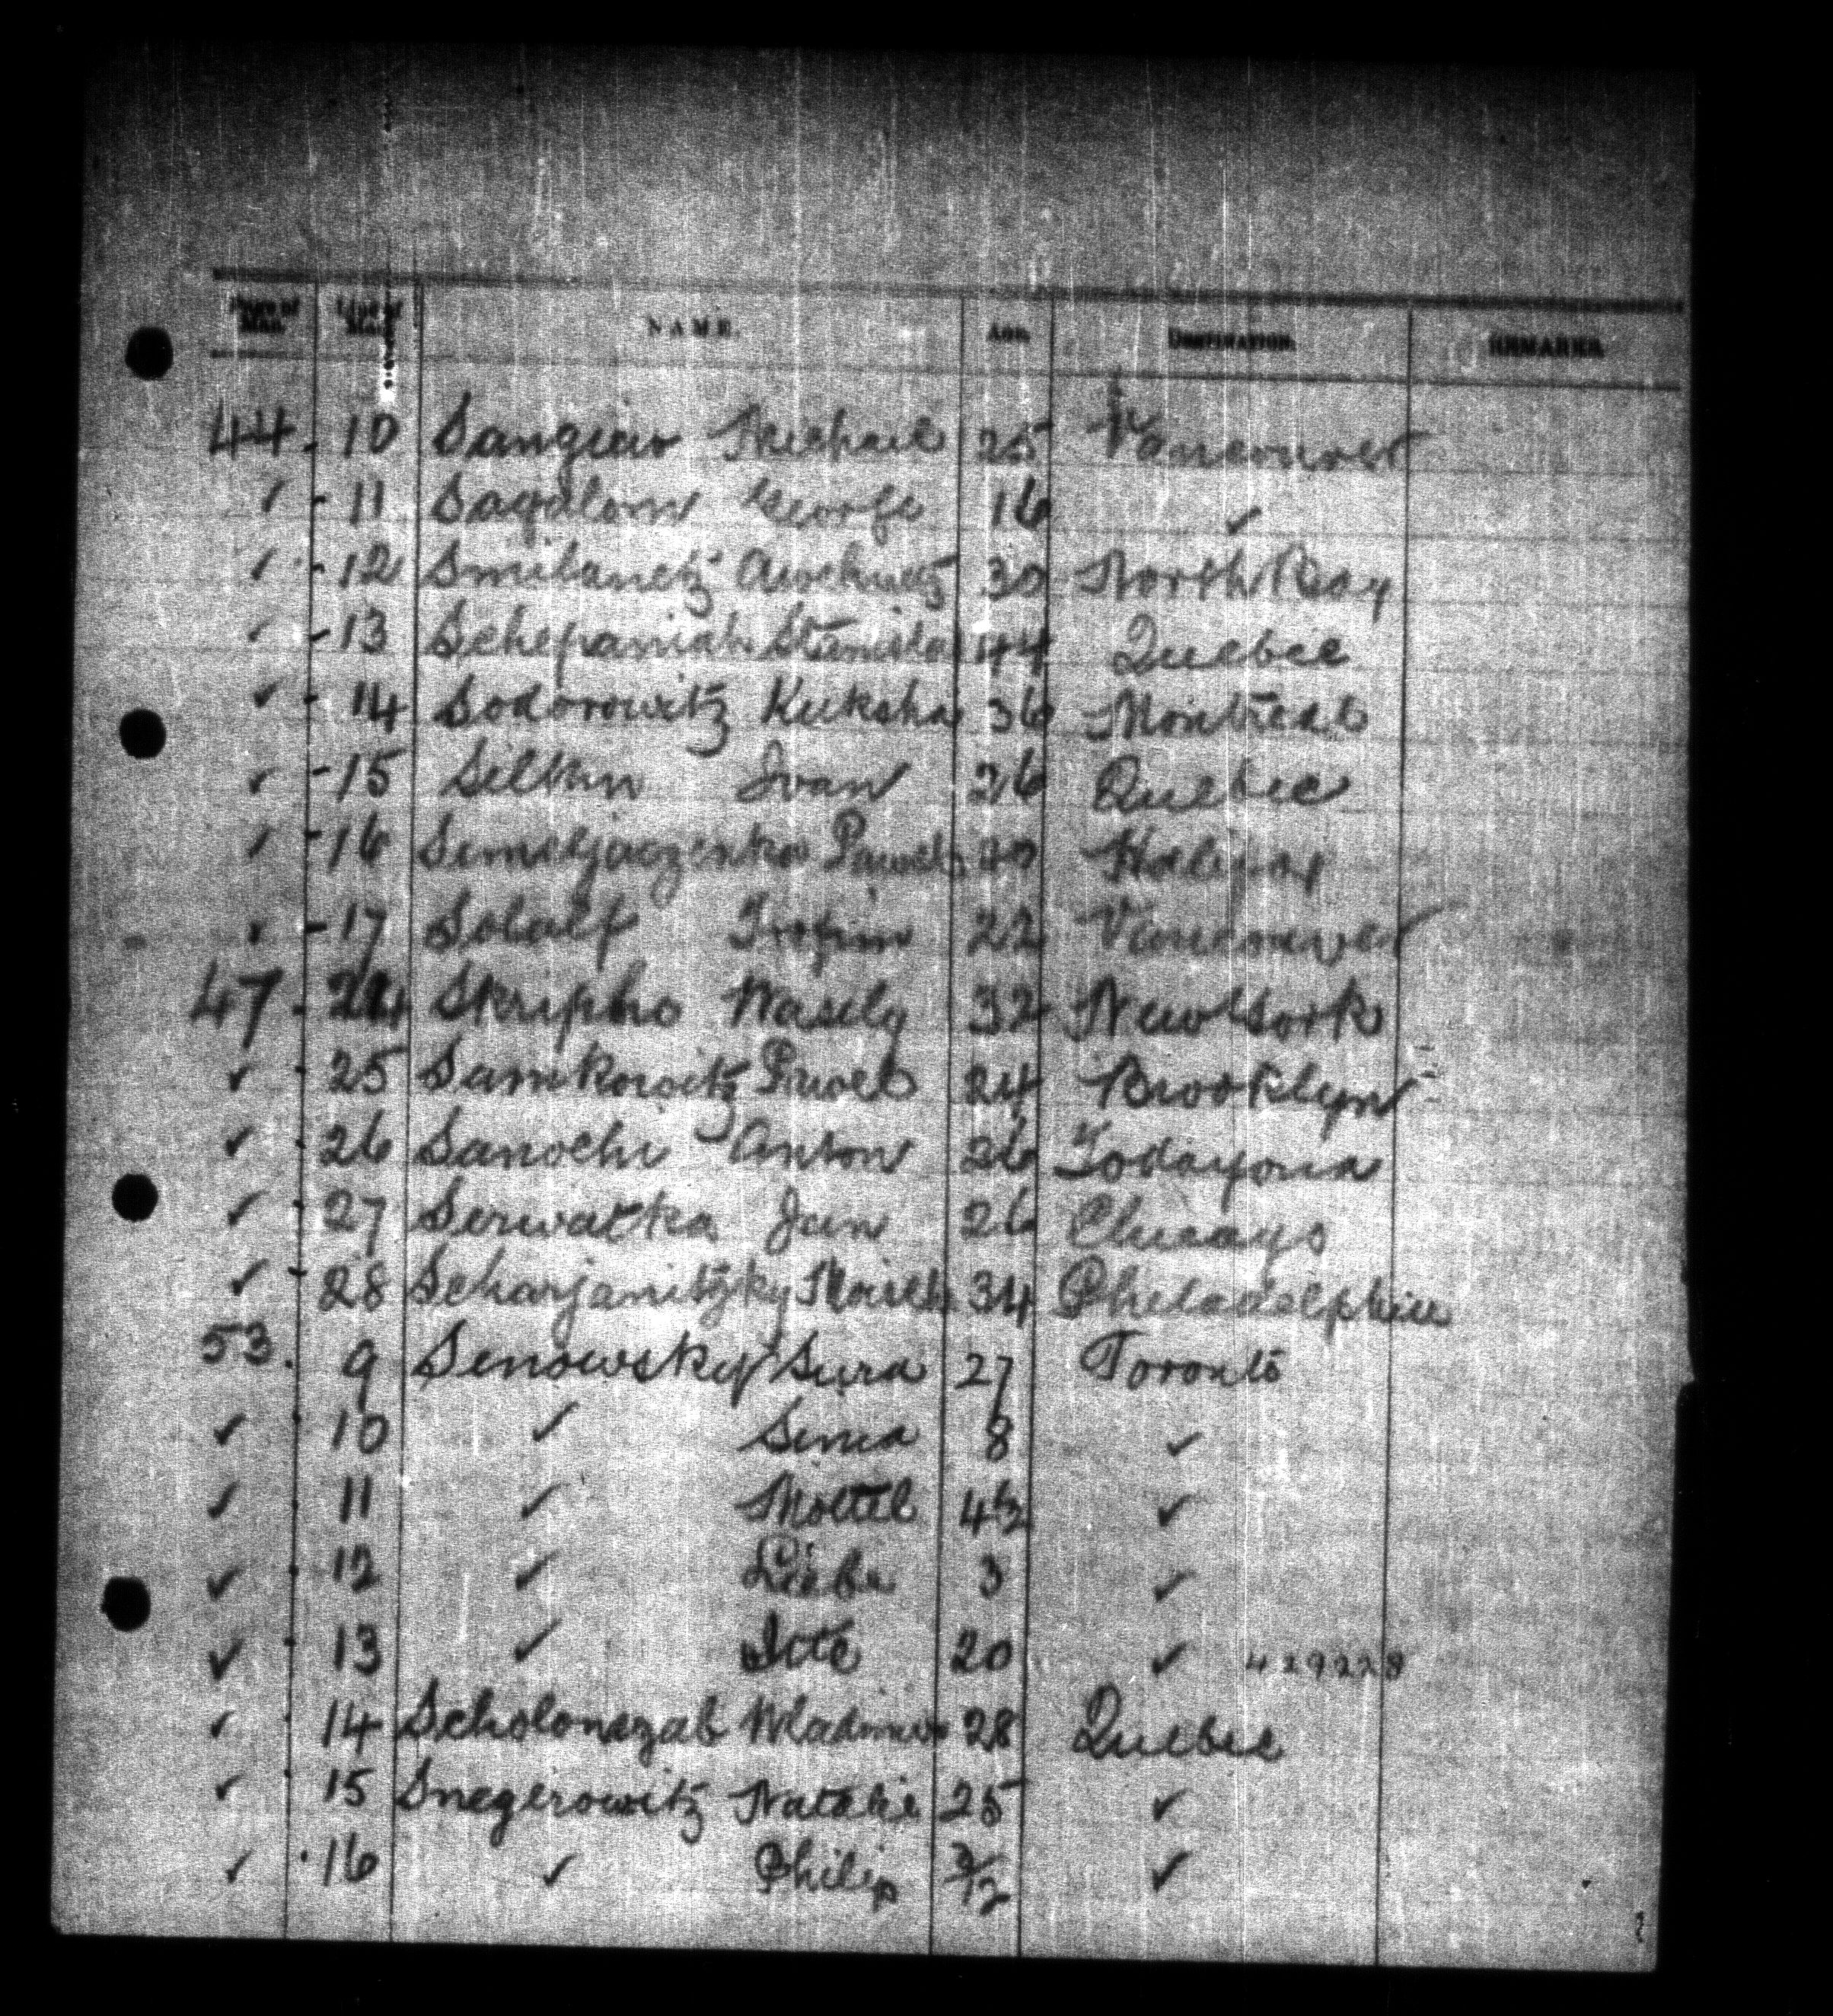 Page of Man. Line of Man. NAME. AGE. DESTINATION. REMARKS.
44 10 Sangiew Michael 25 Vancouver
✓ 11 Sagalow George 16 ✓
✓ 12 Smilanetz 30 North Bay
✓ 13 Schepaniak Stanisla 44 Quebec
✓ 14 Sodorowitz Kuksha 36 Montreal
✓ 15 Silkin Ivan 26 Quebec
✓ 16 Pawel 20 Halifax
✓ 17 Solaif Trofim 22 Vancouver
47 24 Skripho Wasily 32 New York
✓ 25 Samkowitz Pawel 24 Brooklyn
✓ 26 Sanochi Anton 26
✓ 27 Serwatka Jan 26 Chicago
✓ 28 Scharjanitzky 34 Philadelphia
53. 9 Senowsky Sura 27 Toronto
✓ 10 ✓ Sima 8 ✓
✓ 11 ✓ Mottel 4½ ✓
✓ 12 ✓ Liebe 3 ✓
✓ 13 ✓ Itte 20 ✓ 429228
✓ 14 Scholonezab Wladimir 28 Quebec
✓ 15 Snegerowitz Natalie 25 ✓
✓ 16 ✓ Philip ✓